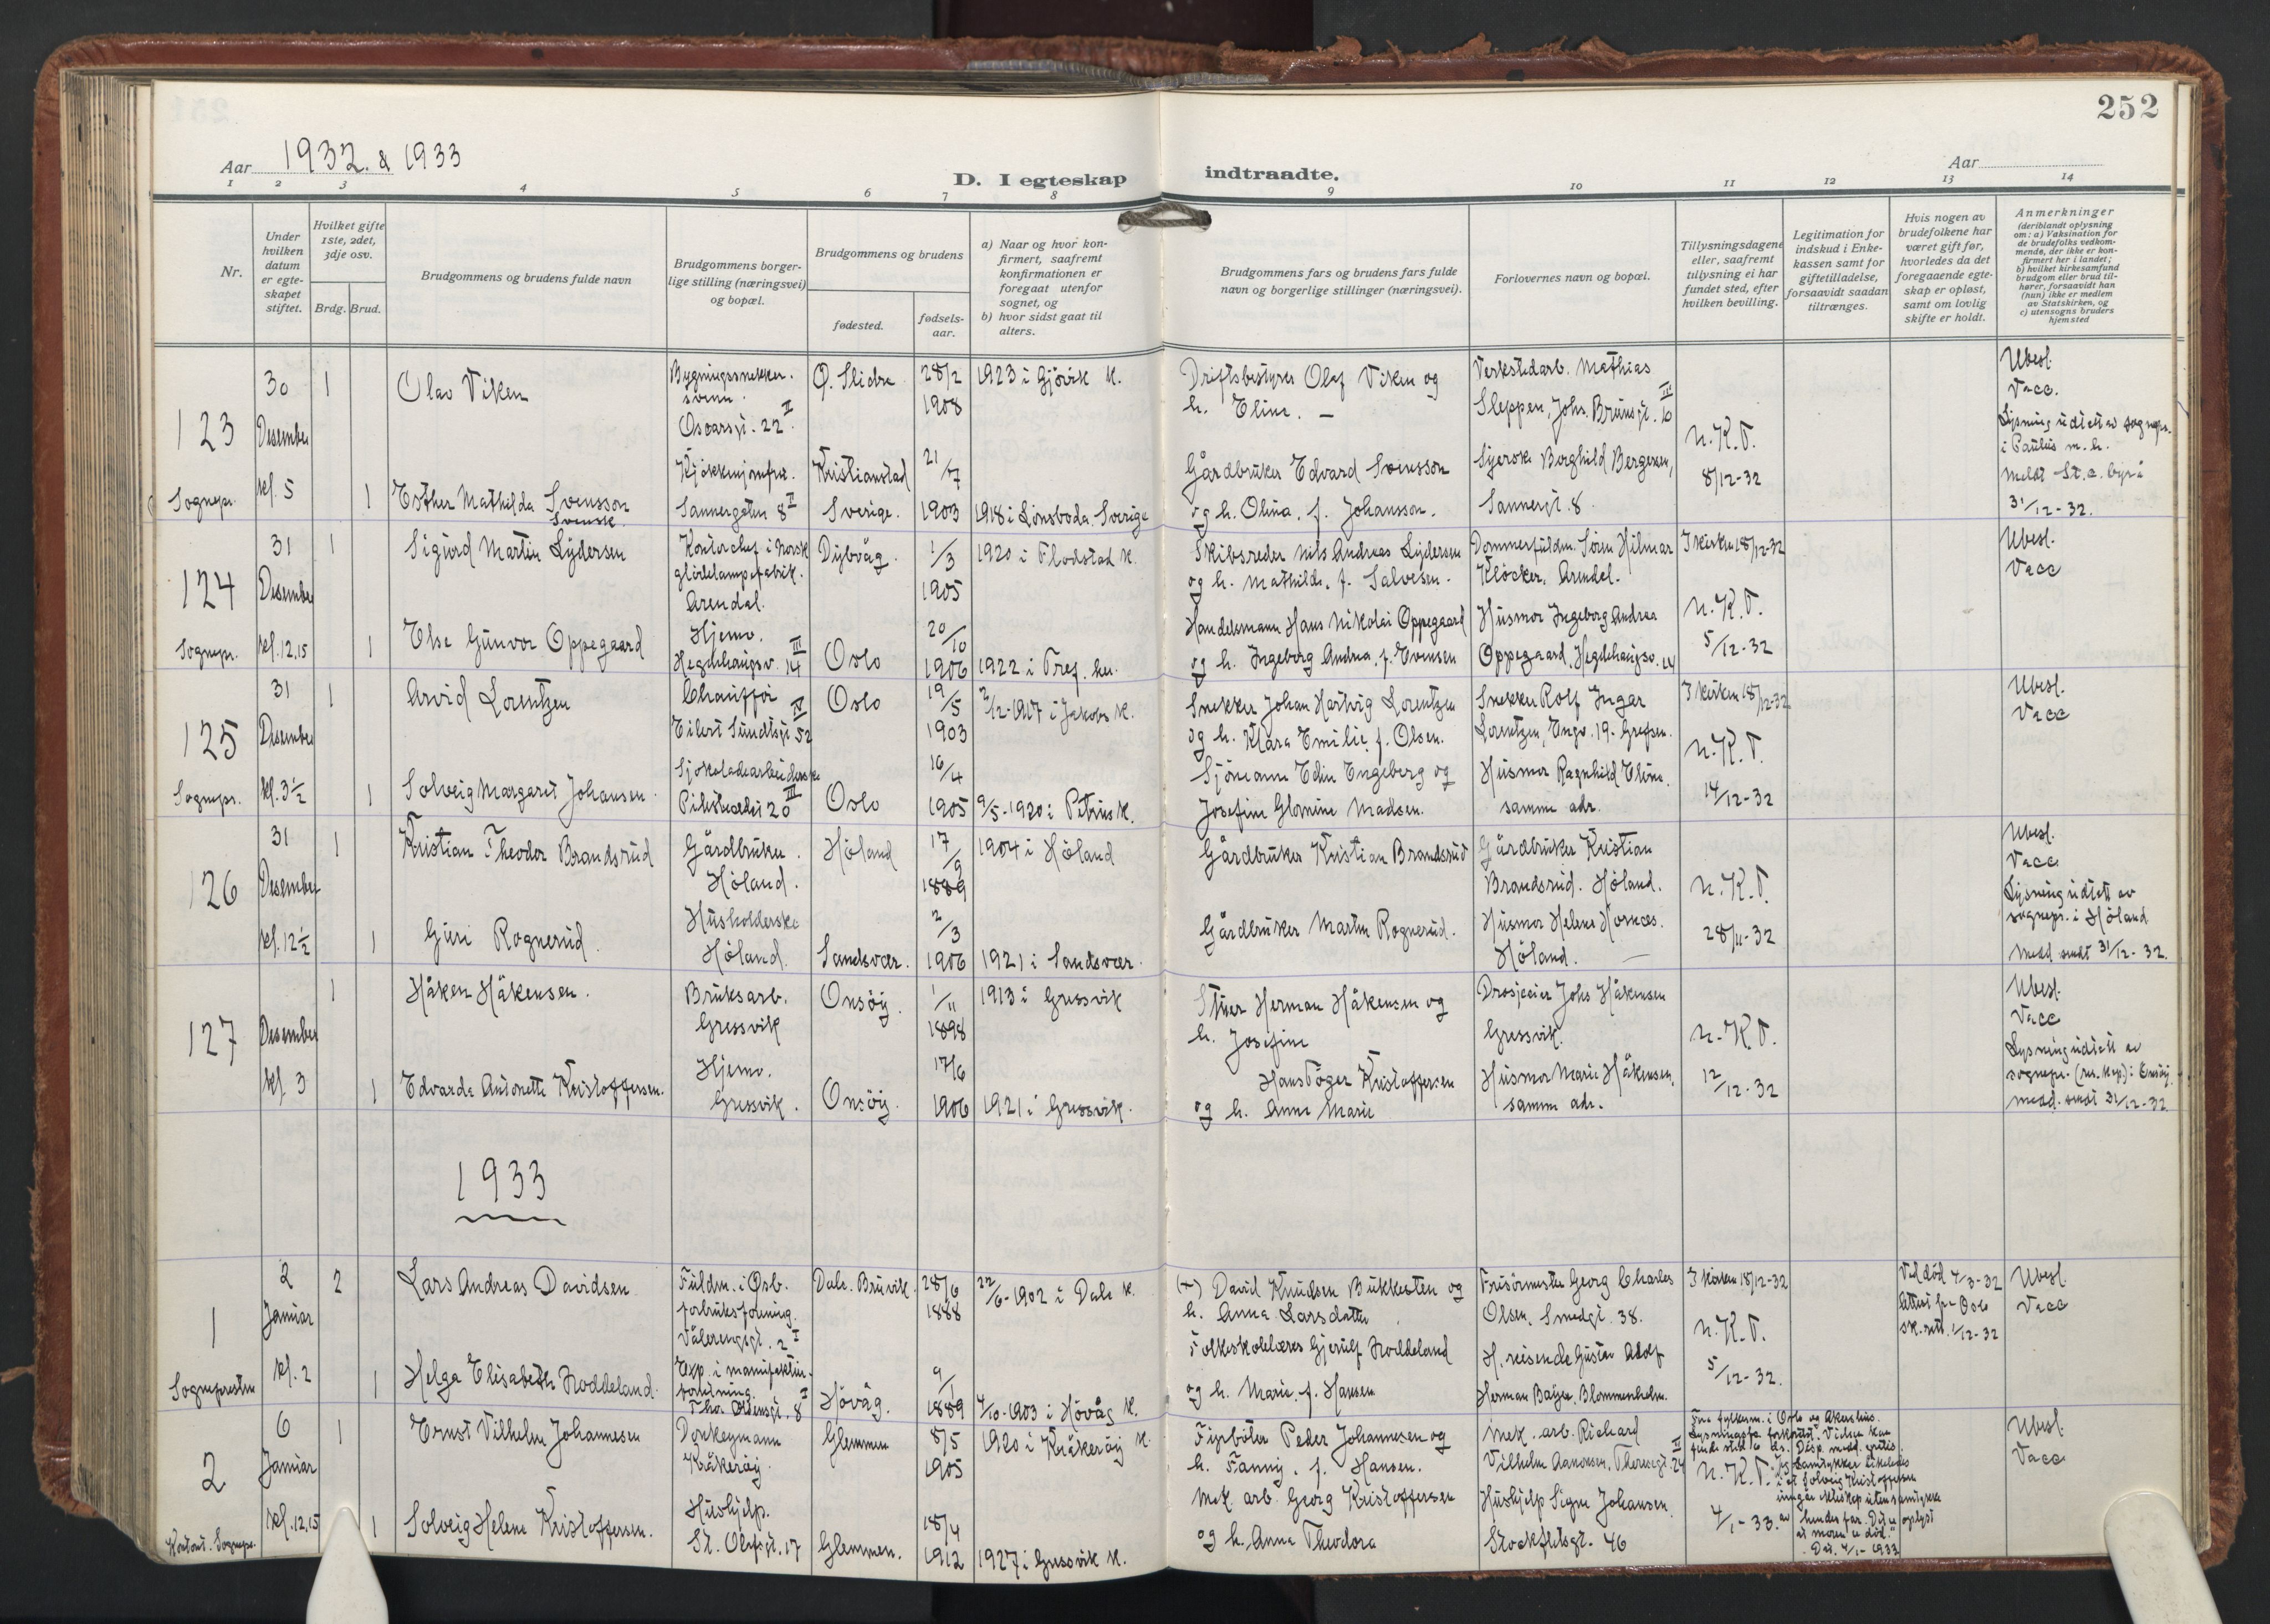 252
Aar 1932. & 1933
D. I egteskap indtraadte.
Aar
1 2 3 4 5 6 7 8 9 10 11 12 13 14
Nr.
Under hvilken datum er egteskapet stiftet.
Hvilket gifte 1ste, 2det, 3dje osv.
Brdg. Brud.
Brudgommens og brudens fulde navn
Brudgommens borgerlige stilling (næringsvei) og bopæl.
Brudgommens og brudens
fødested.
fødselsaar.
a) Naar og hvor konfirmert, saafremt konfirmationen er foregaat utenfor sognet, og
b) hvor sidst gaat til alters.
Brudgommens fars og brudens fars fulde navn og borgerlige stillinger (næringsvei).
Forlovernes navn og bopæl.
Tillysningsdagene eller, saafremt tillysning ei har fundet sted, efter hvilken bevilling.
Legitimation for indskud i Enkekassen samt for giftetilladelse, forsaavidt saadan tiltrænges.
Hvis nogen av brudefolkene har været gift før, hvorledes da det foregaaende egteskap er opløst, samt om lovlig skifte er holdt.
Anmerkninger (deriblandt oplysning om: a) Vaksination for de brudefolks vedkommende, der ikke er konfirmert her i landet; b) hvilket kirkesamfund brudgom eller brud tilhører, forsaavidt han (hun) ikke er medlem av Statskirken, og c) utensogns bruders hjemsted
123
Sognepr.
30 Desember kl. 5
1
Olav Viken
Bygningssnekkersvenn. Oscarsgt. 22 II
Ø. Slidre
28/2 1908
1923 i Gjövik k.
Driftsbestyrer Olaf Viken og
h. Eline. —
Verkstedarb. Mathias
Sleppen, Johs. Brunsgt. 10 III
1
Esther Mathilda Svensson
Svensk.
Kjøkkenjomfru.
Sannergaten 8 II
Kristianstad
Sverige.
21/7 1903
1918 i Lönsboda. Sverige
Gårdbruker Edvard Svensson
og h. Olina, f. Johansson.
Syerske Borghild Bergersen,
Sannergt. 8.
N.K.T.
8/12-32
Ubesl.
Vacc.
Lysning udtatt av sognepr.
i Paulus m.h.
Meldt St. a. byrå
31/12-32.
124
Sognepr.
31 Desember kl. 12,15
1
Sigurd Martin Lydersen
Kontorchef i Norsk
glødelampefabrik.
Arendal.
Dybvåg.
1/3 1905
1920 i Flodstad k.
Skibsreder Nils Andreas Lydersen
og h. Mathilde, f. Salvesen.
Dommerfuldm. Sören Hilmar
Klöcker, Arendal.
I kirken 18/12-32
1
Else Gunvor Oppegaard
Hjemv.
Hegdehaugsv. 14 III
Oslo
20/10 1906
1922 i Tref. k.
Handelsmann Hans Nikolai Oppegaard
og h. Ingeborg Andrea, f. Evensen
Husmor Ingeborg Andrea
Oppegaard, Hegdehaugsv. 14
N.K.T.
5/12-32
Ubesl.
Vacc
125
Sognepr.
31 Desember kl. 3 1/2
1
Arvid Lorentzen
Chauffør
Eilert Sundtsgt 52 IV
Oslo
19/5 1903
2/12-1917 i Jakobs k.
Snekker Johan Hartvig Lorentzen
og h. Klara Emilie, f. Olsen.
Snekker Rolf Ingar
Lorentzen, Engv. 19. Grefsen.
I kirken 18/12-32
1
Solveig Margaret Johansen
Sjokoladearbeiderske
Pilestredet 20 III
Oslo
16/4 1905
9/5-1920 i Petrus k.
Sjömann Edin Engeberg og
Josefine Glomine Madsen.
Husmor Ragnhild Eline.
samme adr.
N.K.T.
14/12-32
Ubesl.
Vacc
126
31 Desember kl. 12 1/2
1
Kristian Theodor Brandsrud
Gårdbruker.
Höland.
Höland
17/9 1889
1904 i Höland
Gårdbruker Kristian Brandsrud
Gårdbruker Kristian
Brandsrud. Höland.
1
Guri Rognerud.
Husholderske
Höland.
Sandsvær.
2/3 1906
1921 i Sandsvær.
Gårdbruker Martin Rognerud.
Husmor Helene Hornæs.
Höland.
N.K.T.
28/11-32
Ubesl.
Vacc
Lysning udtatt av
sognepr. i Höland
Medd. sendt 31/12-32.
127
Desember kl. 3
1
Håken Håkensen.
Bruksarb.
Gressvik
Onsöy.
1/11 1898
1913 i Gressvik
Stuer Herman Håkensen og
h. Josefine
Drosjeeier Johs Håkensen
Gressvik.
1
Edvarda Antonette Kristoffersen.
Hjemv.
Gressvik.
Onsöy.
17/6 1906
1921 i Gressvik.
Hans Töger Kristoffersen
og h. Anne Marie
Husmor Marie Håkensen,
samme adr.
N.K.T.
12/12-32
Ubesl.
Vacc
Lysning udtatt av
sognepr. (res. kap.) i Onsöy
medd. sendt 31/12-32
1933
1
Sognepresten
2 Januar kl. 2
2
Lars Andreas Davidsen
Fuldm. i Osb.
forbruksforening.
Vålerenggt. 2 I
Dale. Bruvik.
28/6 1888
22/6-1902 i Dale k.
(+) David Knudsen Bukkesten og
h. Anna Larsdatter
Frisörmester Georg Charles
Olsen, Smedgt. 38.
I kirken 18/12-32
1
Helga Elisabeth Hoddeland
Exp. i manufakturforretning.
Tho. Olsensgt. 8 I
Hövåg.
9/1 1889
4/10-1903 i Hövåg k.
Folkeskolelærer Gjerulf Hoddeland
og h. Marie, f. Hansen
H. reisende Gustav Adolf
Herman Bayer. Blommenholm.
N.K.T.
5/12-32.
Ved död 4/3-32
attest fra Oslo
sk.rett. 1/12-32
Ubesl
Vacc
2
6 Januar kl. 12,15
1
Ernst Vilhelm Johannesen
Donkeymann
Kråkeröy.
Glemmen
8/5 1905
1920 i Kråkeröy k.
Fyrböter Peder Johannesen og
h. Fanny, f. Hansen.
Mek. arb. Richard
Vilhelm Aanonsen, Theresesgt. 24 III
1
Solveig Helene Kristoffersen.
Hushjelp.
St. Olafsgt. 17
Glemmen.
18/4 1912
1927 i Gressvik k.
Mek. arb. Georg Kristoffersen
og h. Anna Theodora
Hushjelp Signe Johansen.
Stockfletsgt. 46
N.K.T.
4/1-33.
i Oslo og Akershus.
Solveig Kristoffersen
hendes far. Det er oplyst
at moren er död."
4/1-1933
Ubesl.
Vacc